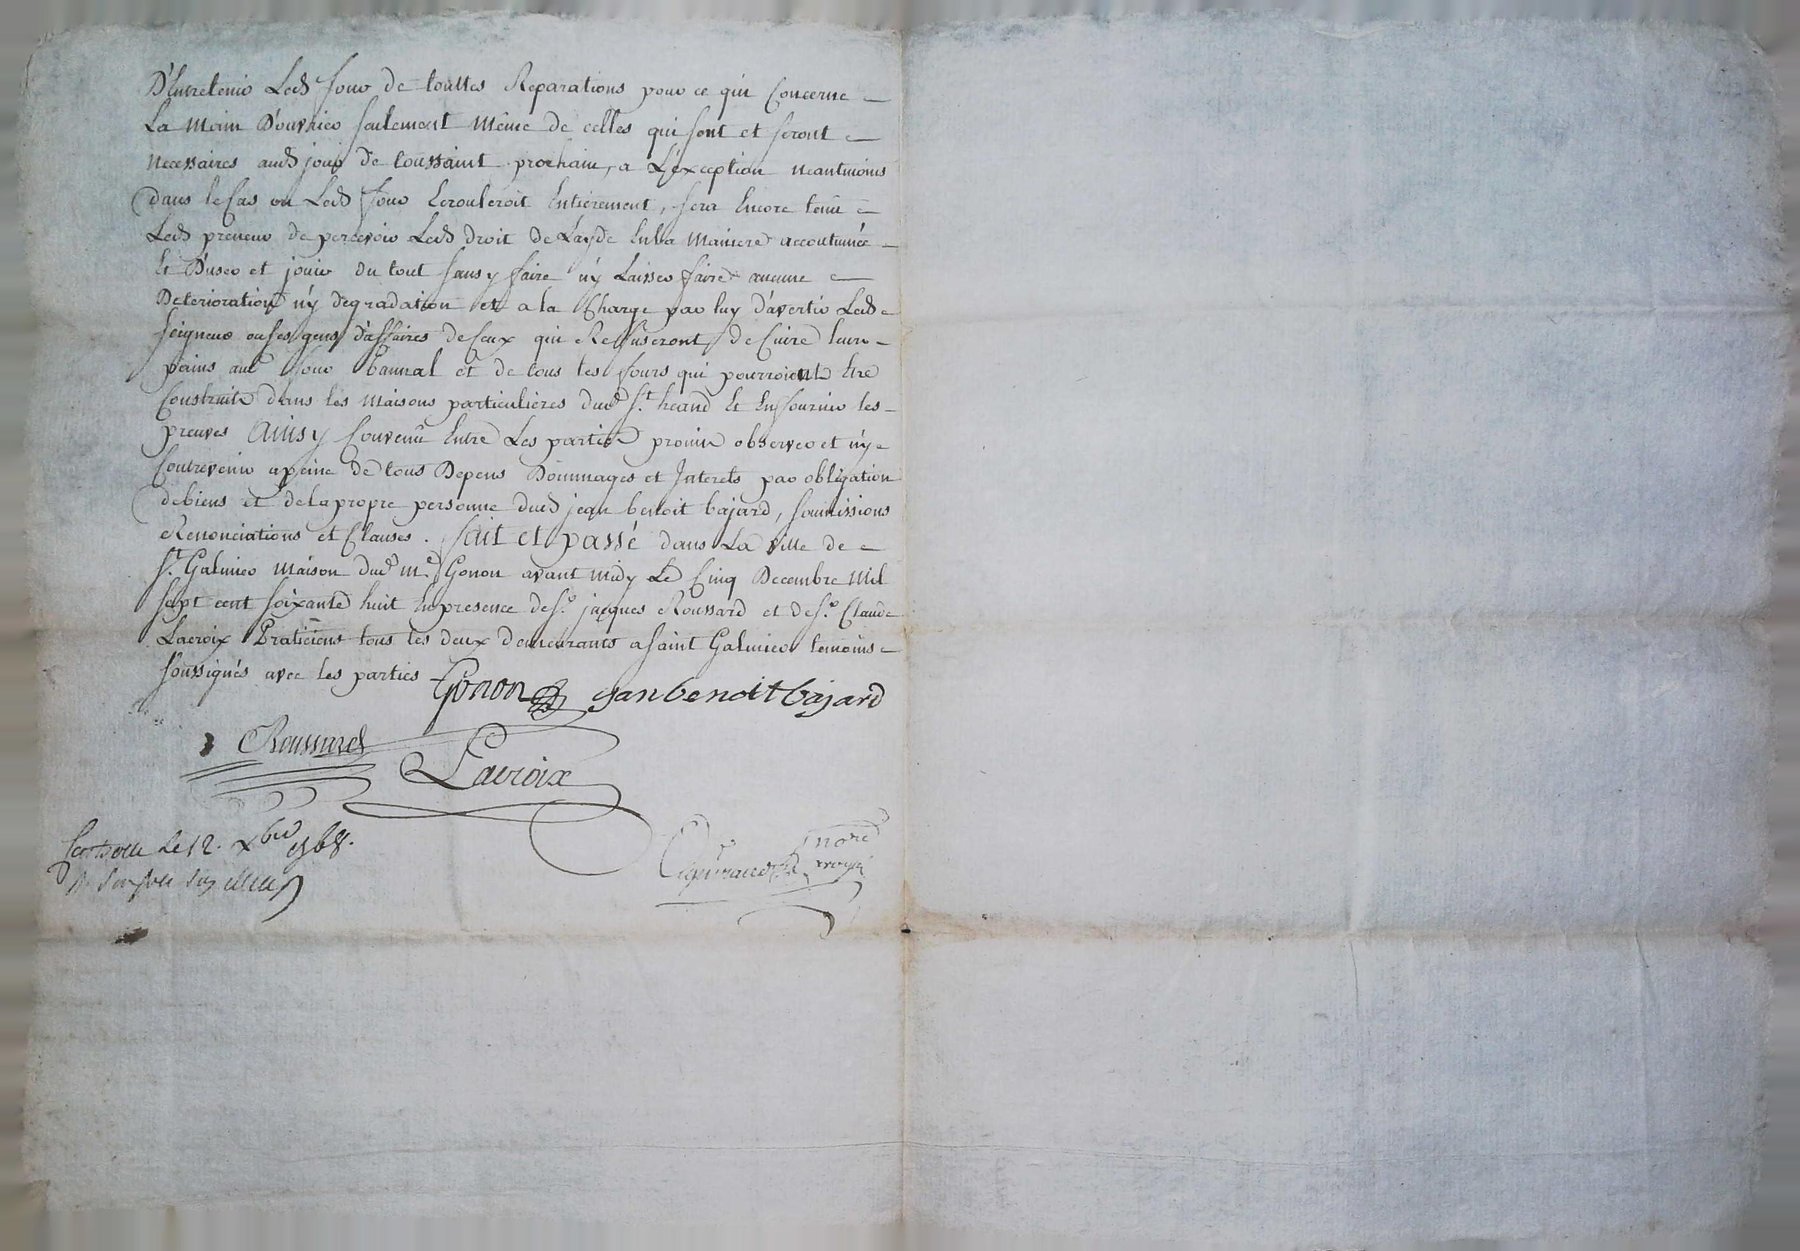 D'Entretenir Led four de touttes Reparations pour ce qui Concerne
La main D'ouvrier seulement Même de celles qui sont et seront
Necessaires aud jour de toussaint prochain, a L'exception neantmoins
dans le Cas ou Led four Ecrouleroit Entierement, sera Encore tenu
Led preneur de percevoir Led droit de Layde En La Maniere accoutumée
Et D'user et jouir du tout sans y faire n'y Laisser faire aucune
Deterioration n'y degradation et a la Charge par luy d'avertir Led
seigneur ou ses gens d'affaires de Ceux qui Refuseront de Cuire leurs
pains aud four bannal et de tous les fours qui pourroient Etre
Construits dans les maisons particulières dud St. heand Et En fournir les
preuves Ainsy Convenû Entre Les parties promis observer et n'y
Contrevenir a peine de tous Depens Dommages et Interets par obligation
de biens et de la propre personne dud jean benoit bajard, soumissions
Renonciations et Clauses. fait et passé dans La Ville de
St. Galmier maison dud me. Gonon avant midy Le Cinq Decembre Mil
sept cent soixante huit En presence de Sr. jacques Roussard et de Sr. Claude
Lacroix Praticiens tous les deux demeurants a saint Galmier temoins
soussignés avec les parties
Gonon jean benoit bajard
Roussard
Lacroix
le 12. Xbre 1768.